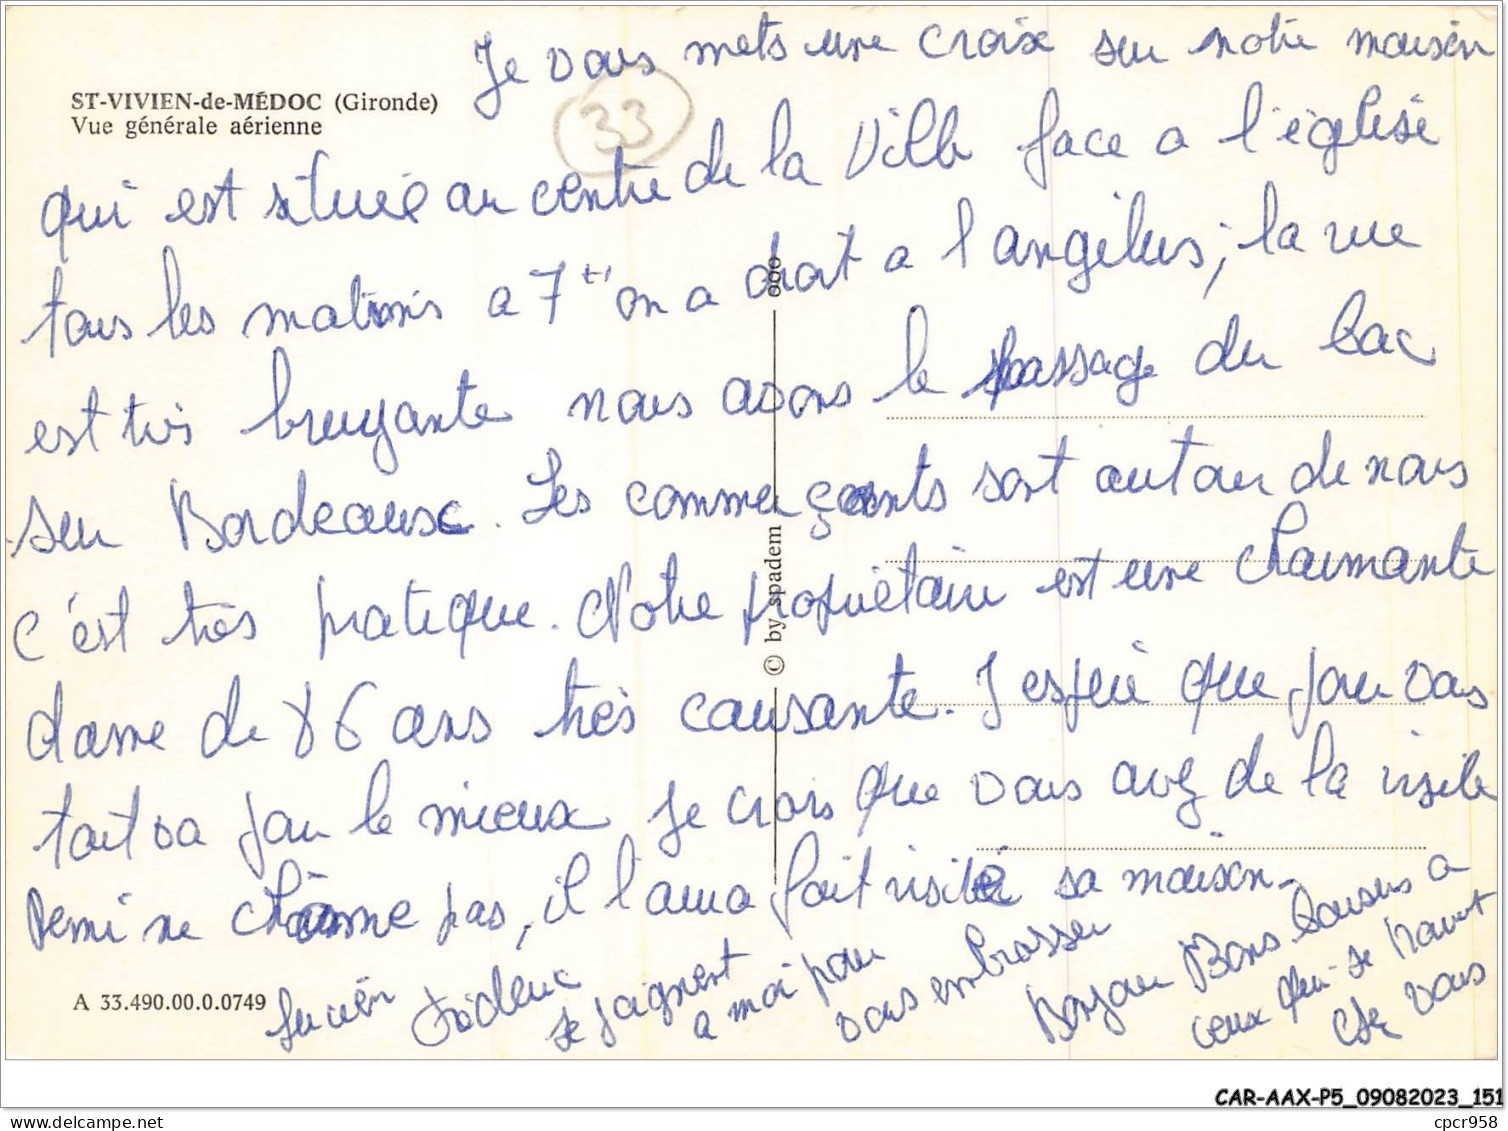 Je vous mets une croix sur notre maison
ST-VIVIEN-de-MÉDOC (Gironde)
Vue générale aérienne
33
qui est située au centre de la ville face a l'église
tous les matins a 7 on a droit a l angelus, la rue
est très bruyante nous avons le passage du bac
sur Bordeaux. Les commerçants sont autour de nous
c'est très pratique. Notre propriétaire est une charmante
dame de 86 ans très causante. J espère que pour vous
tout va pour le mieux Je crois que vous avez de la visite
Remi ne chôme pas, il l aura fait visité sa maison.
Lucien Frédéric se joignent a moi pour vous embrasser
Bonjour Bons baisers a
ceux qui se trouvent
chez vous
© by spadem
A 33.490.00.0.0749
CAR-AAX-P5_09082023_151
delcampe.net
cpcr958